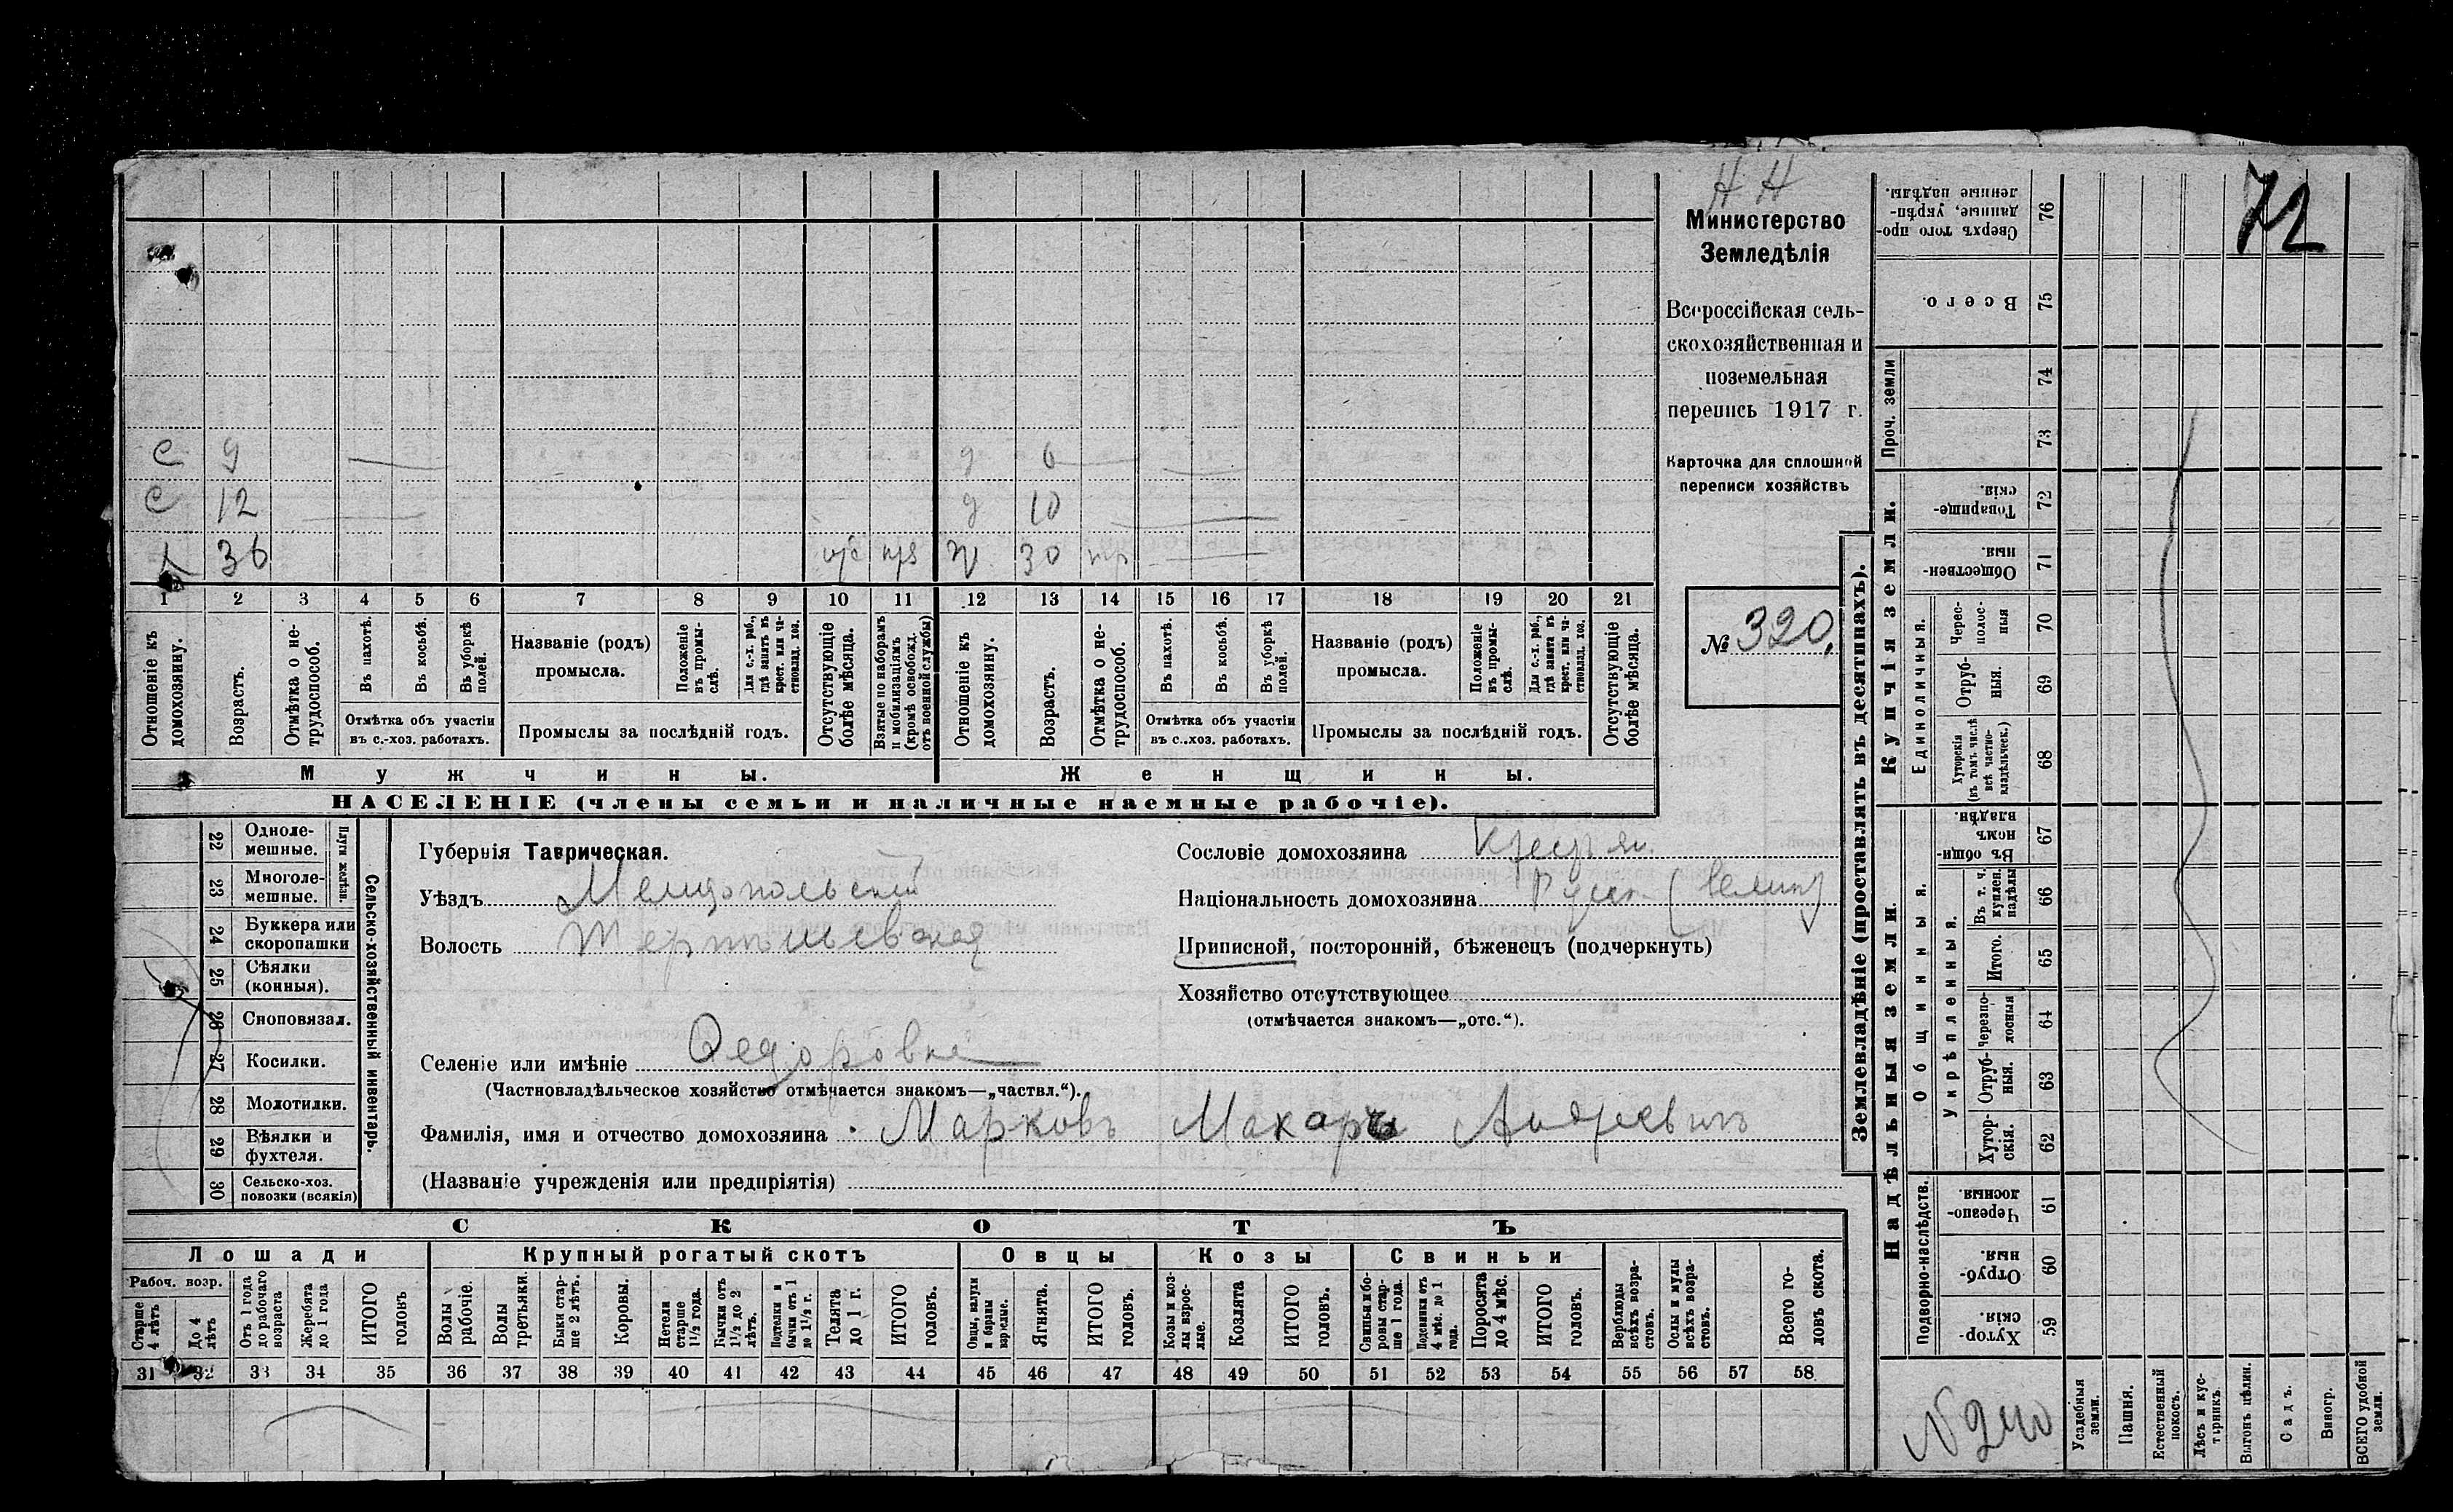 Н Н
72
Министерство
Земледѣлія
Всероссійская сель-
скохозяйственная и
поземельная
перепись 1917 г.
Карточка для сплошной
переписи хозяйствъ
№ 320.
с 9 д 6
с 12 д 10
36 30
1 2 3 4 5 6 7 8 9 10 11 12 13 14 15 16 17 18 19 20 21
Отношеніе къ домохозяину.
Возрастъ.
Отмѣтка о не-трудоспособ.
Въ пахотѣ.
Въ косьбѣ.
Въ уборкѣ полей.
Отмѣтка объ участіи
въ с.-хоз. работахъ.
Названіе (родъ)
промысла.
Положеніе въ промы-слѣ.
Для с.-х. раб., гдѣ занятъ въ крест. или ча-стновлад. хоз.
Промыслы за послѣдній годъ.
Отсутствующіе болѣе мѣсяца.
Взятые по наборамъ и мобилизаціямъ (кромѣ освобожд. отъ военной службы)
Отношеніе къ домохозяину.
Возрастъ.
Отмѣтка о не-трудоспособ.
Въ пахотѣ.
Въ косьбѣ.
Въ уборкѣ полей.
Отмѣтка объ участіи
въ с.-хоз. работахъ.
Названіе (родъ)
промысла.
Положеніе въ промы-слѣ.
Для с.-х. раб., гдѣ занятъ въ крест. или ча-стновлад. хоз.
Промыслы за послѣдній годъ.
Отсутствующіе болѣе мѣсяца.
Мужчины. Женщины.
НАСЕЛЕНІЕ (члены семьи и наличные наемные рабочіе).
Сельско-хозяйственный инвентарь.
Плуги желѣзн.
22 Одноле-мешные.
23 Многоле-мешные.
24 Буккера или скоропашки
25 Сѣялки (конныя).
26 Сноповязал.
27 Косилки.
28 Молотилки.
29 Вѣялки и фухтеля.
30 Сельско-хоз. повозки (всякія)
Губернія Таврическая.
Уѣздъ Мелитопольскій
Волость
Селеніе или имѣніе Федоровка
(Частновладѣльческое хозяйство отмѣчается знакомъ—„частвл.“).
Фамилія, имя и отчество домохозяина Марковъ Макаръ Андреевичъ
(Названіе учрежденія или предпріятія)
Сословіе домохозяина крестьян.
Національность домохозяина Русск. (велик)
Приписной, посторонній, бѣженецъ (подчеркнуть)
Хозяйство отсутствующее
(отмѣчается знакомъ—„отс.“).
СКОТЪ
Лошади Крупный рогатый скотъ Овцы Козы Свиньи
Рабоч. возр.
Старше 4 лѣтъ
До 4 лѣтъ
Отъ 1 года до рабочаго возраста
Жеребята до 1 года
ИТОГО головъ
Волы рабочіе.
Волы третьяки.
Быки стар-ше 2 лѣтъ.
Коровы.
Нетели старше 1½ года.
Бычки отъ 1½ до 2 лѣтъ.
Подтелки и бычки отъ 1 до 1½ г.
Телята до 1 г.
ИТОГО головъ.
Овцы, валухи и бараны взрослые.
Ягнята.
ИТОГО головъ.
Козы и коз-лы взрос-лые.
Козлята
ИТОГО головъ.
Свиньи и бо-ровы стар-ше 1 года.
Подсвинки отъ 4 мѣс. до 1 года.
Поросята до 4 мѣс.
ИТОГО головъ.
Верблюды всѣхъ возра-стовъ.
Ослы и мулы всѣхъ возра-стовъ.
Всего го-ловъ скота.
31 32 33 34 35 36 37 38 39 40 41 42 43 44 45 46 47 48 49 50 51 52 53 54 55 56 57 58
Землевладѣніе (проставлять въ десятинахъ).
Купчія земли.
Надѣльныя земли.
Сверхъ того про-данные, укрѣп-ленные надѣлы. 76
Всего. 75
Проч. земли 74
73
Товарище-скія. 72
Обществен-ныя. 71
Единоличныя.
Черес-полос-ныя 70
Отруб-ныя. 69
Хуторскія (въ томъ числѣ всѣ частно-владѣльческ.) 68
Общинныя.
Въ общи-номъ владѣн. 67
Укрѣпленныя.
Въ т. ч. куплен. надѣлы 66
Итого. 65
Черезпо-лосныя 64
Отруб-ныя. 63
Хутор-скія. 62
Подворно-наслѣдств.
Черезпо-лосныя. 61
Отруб-ныя. 60
Хутор-скія. 59
N 240
Усадебныя земли.
Пашня.
Естественный покосъ.
Лѣсъ и кус-тарникъ.
Выгонъ цѣлин.
Садъ.
Виногр.
ВСЕГО удобной земли.